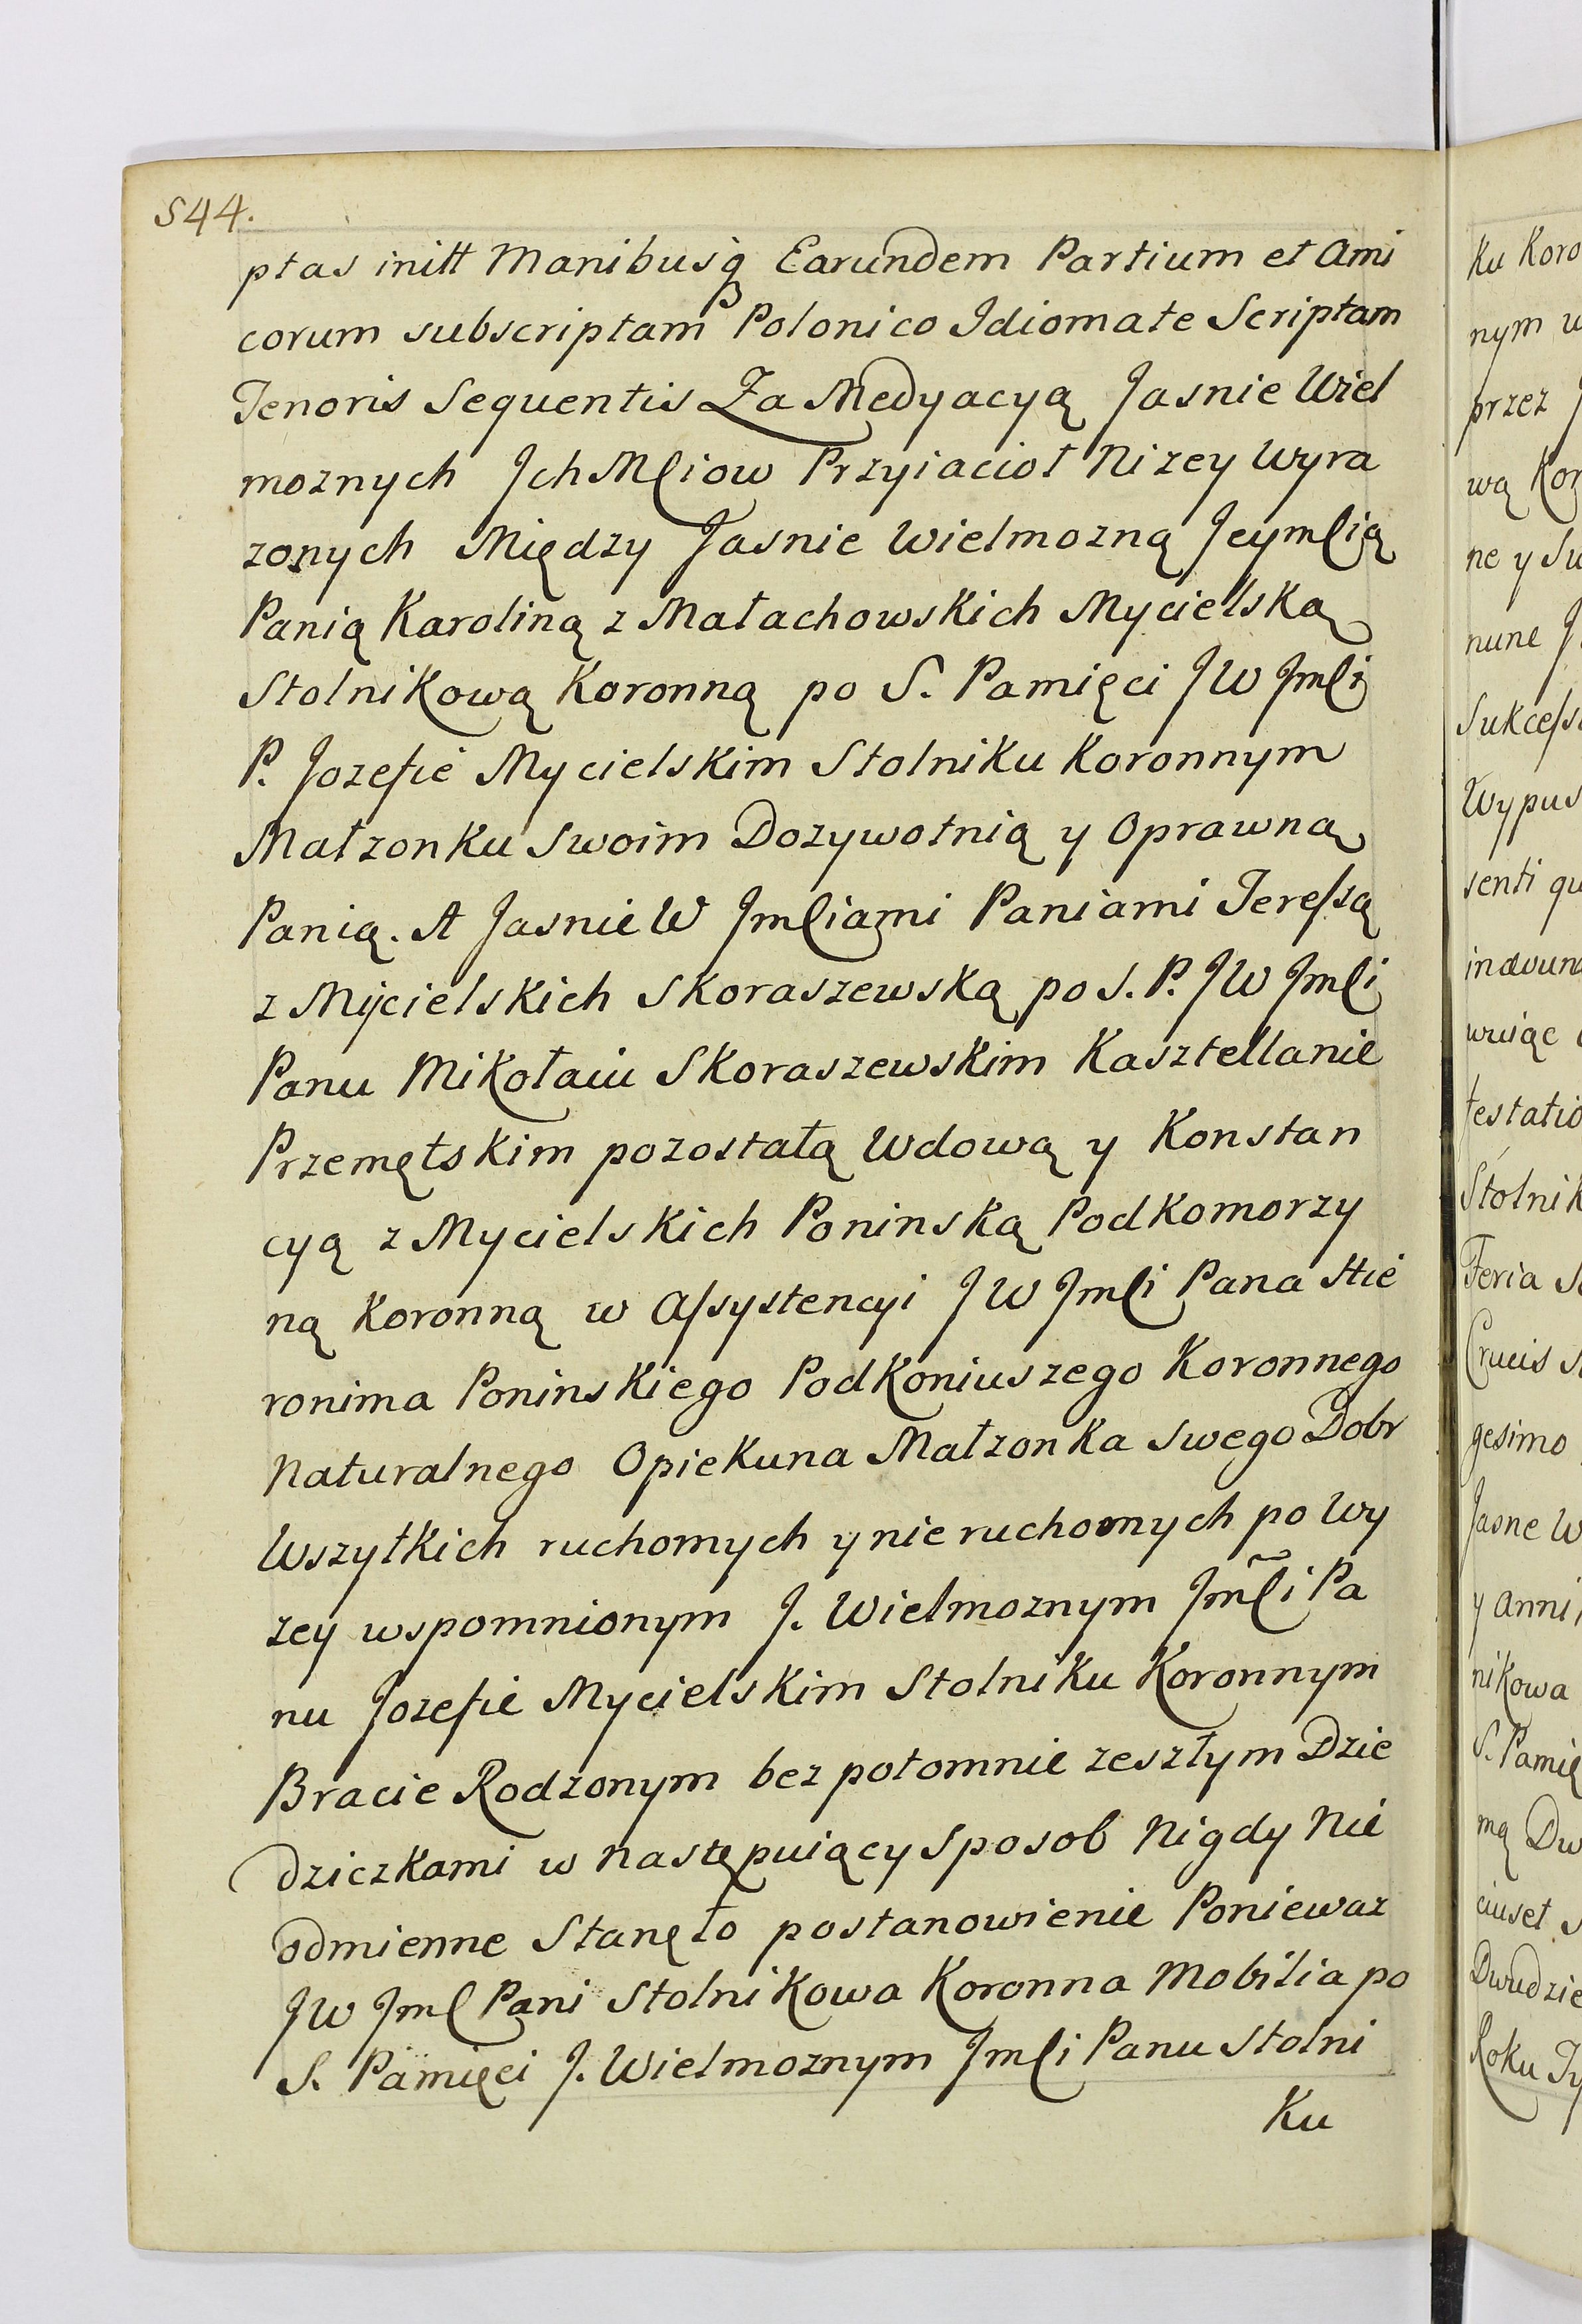 544.
ptas initt Manibusq Earundem Partium et Ami
corum subscriptam Polonico Idiomate Scriptam
Tenoris Sequentis Za Medyacyą Jasnie Wiel
moznych Jch Mſciow Przyiacioł Nizey Wyra
zonych Między Jasnie Wielmozną Jeymſcią
Panią Karoliną z Małachowskich Mycielską
Stolnikową Koronną po S. Pamięci JW Jmſci
P. Jozefie Mycielskim Stolniku Koronnym
Małzonku Swoim Dozywotnią y Oprawną
Panią. A Jasnie W Jmſciami Paniami Tereſsą
z Mycielskich Skoraszewską po S. P. JW Jmſci
Panu Mikołaiu Skoraszewskim Kasztellanie
Przemętskim pozostałą Wdową y Konstan
cyą z Mycielskich Poninską Podkomorzy
ną Koronną w Aſsystencyi JW Jmſci Pana Hie
ronima Poninskiego Podkoniuszego Koronnego
Naturalnego Opiekuna Małzonka Swego Dobr
Wszytkich ruchomych y nie ruchomych po Wy
zey wspomnionym J. Wielmoznym Jmſci Pa
nu Jozefie Mycielskim Stolniku Koronnym
Bracie Rodzonym bez potomnie zeszłym Dzie
dziczkami w Następuiący Sposob Nigdy Nie
odmienne Stanęło postanowienie Poniewaz
JW Jmſc Pani Stolnikowa Koronna Mobilia po
S. Pamięci J. Wielmoznym Jmſci Panu Stolni
Ku
Ku Koro
nym
przez
wą Kor
ne y Su
nune
Sukceſso
Wypus
senti qu
testatio
Stolnik
Feria
Crucis
gesimo
Jasne W
y anni
nikowa
S. Pamię
mą Dw
ciuset
Dwudzie
Roku Ty